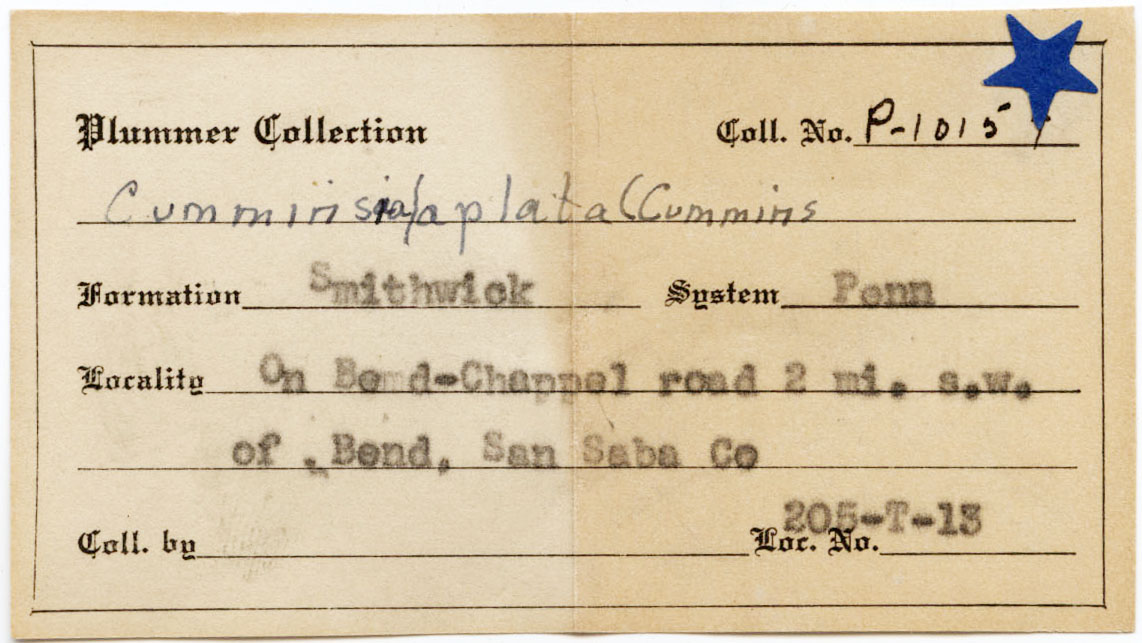 Plummer Collection Coll. No. P-1015
aplata (Cummins
Formation Smithwick System Penn
Locality On Bend-Chappel road 2 mi. s.w.
of Bend, San Saba Co
205-T-13
Coll. by Loc. No.